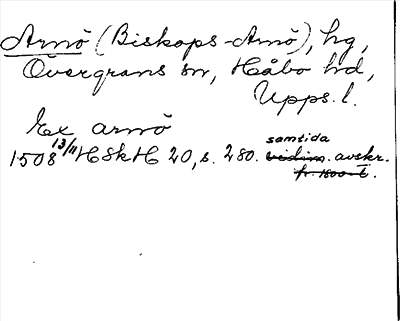 Arnö (Biskops-Arnö), hg,
Övergrans sn, Håbo hd,
Upps. l.
Ex arnö
1508 13/11 HSkH 20, s. 280. samtida vidim. avskr.
fr. 1800-t.